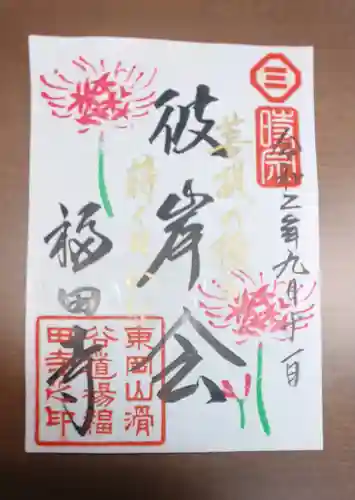 時宗
令和二年九月廿一日
彼岸会
福田寺
東岡山滑
谷道場福
田寺之印